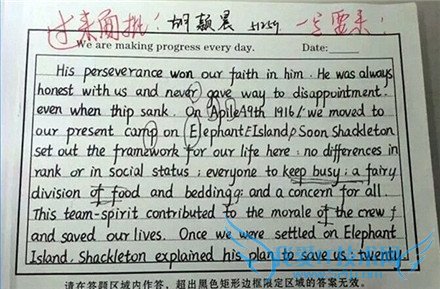 过来面批！胡颖晨 51259 一定要来！
We are making progress every day. Date:
His perseverance won our faith in him. He was always
honest with us and never gave way to disappointment.
even when thip sank. On Aplie 49th 1916/ we moved to
our present camp on Elephant EIsland, Soon Shackleton
set out the framework for our life here: no differences in
rank or in social status; everyone to keep busy; a fairy
division of food and bedding; and a concern for all.
This team-spirit contributed to the morale of the crew
and saved our lives. Once we were settled on Elephant
Island, Shackleton explained his plan to save us: twenty
请在答题区域内作答，超出黑色矩形边框限定区域的答案无效。